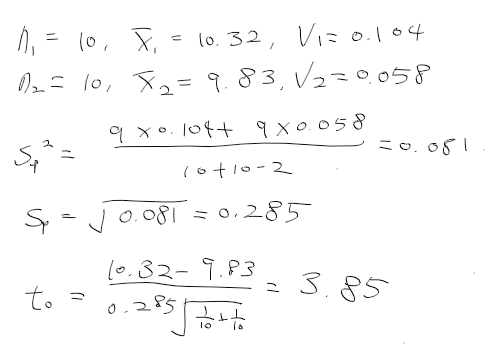 n₁ = 10, x̄₁ = 10.32, V₁ = 0.104
n₂ = 10, x̄₂ = 9.83, V₂ = 0.058
Sp² = (9 × 0.104 + 9 × 0.058) / (10 + 10 - 2) = 0.081
Sp = √0.081 = 0.285
t₀ = (10.32 - 9.83) / (0.285 √(1/10 + 1/10)) = 3.85